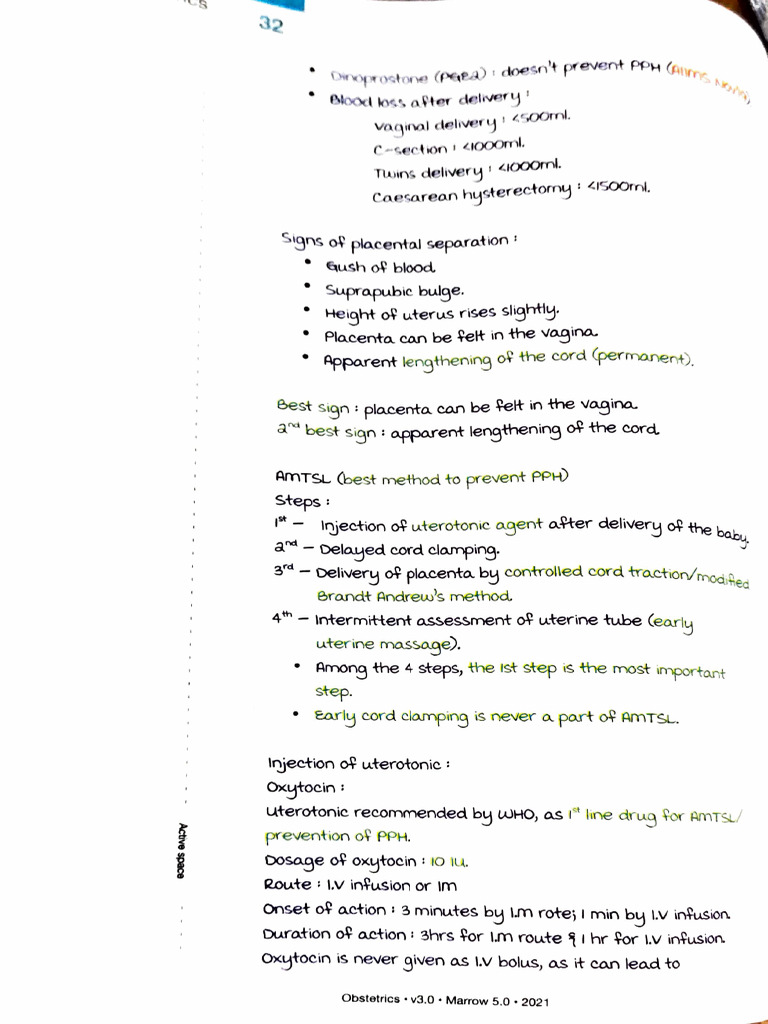 32
• Dinoprostone (PGE2) : doesn't prevent PPH (AIIMS Nov
• Blood loss after delivery :
Vaginal delivery : <500ml.
C-section : <1000ml.
Twins delivery : <1000ml.
Caesarean hysterectomy : <1500ml.
Signs of placental separation :
• Gush of blood.
• Suprapubic bulge.
• Height of uterus rises slightly.
• Placenta can be felt in the vagina.
• Apparent lengthening of the cord (permanent).
Best sign : placenta can be felt in the vagina.
2nd best sign : apparent lengthening of the cord.
AMTSL (best method to prevent PPH)
Steps :
1st – Injection of uterotonic agent after delivery of the baby.
2nd – Delayed cord clamping.
3rd – Delivery of placenta by controlled cord traction/modified
Brandt Andrew's method.
4th – Intermittent assessment of uterine tube (early
uterine massage).
• Among the 4 steps, the 1st step is the most important
step.
• Early cord clamping is never a part of AMTSL.
Injection of uterotonic :
Oxytocin :
Uterotonic recommended by WHO, as 1st line drug for AMTSL/
prevention of PPH.
Dosage of oxytocin : 10 IU.
Route : I.V infusion or IM
Onset of action : 3 minutes by I.m rote; 1 min by I.V infusion.
Duration of action : 3hrs for I.m route & 1 hr for I.V infusion.
Oxytocin is never given as I.V bolus, as it can lead to
Active space
Obstetrics • v3.0 • Marrow 5.0 • 2021